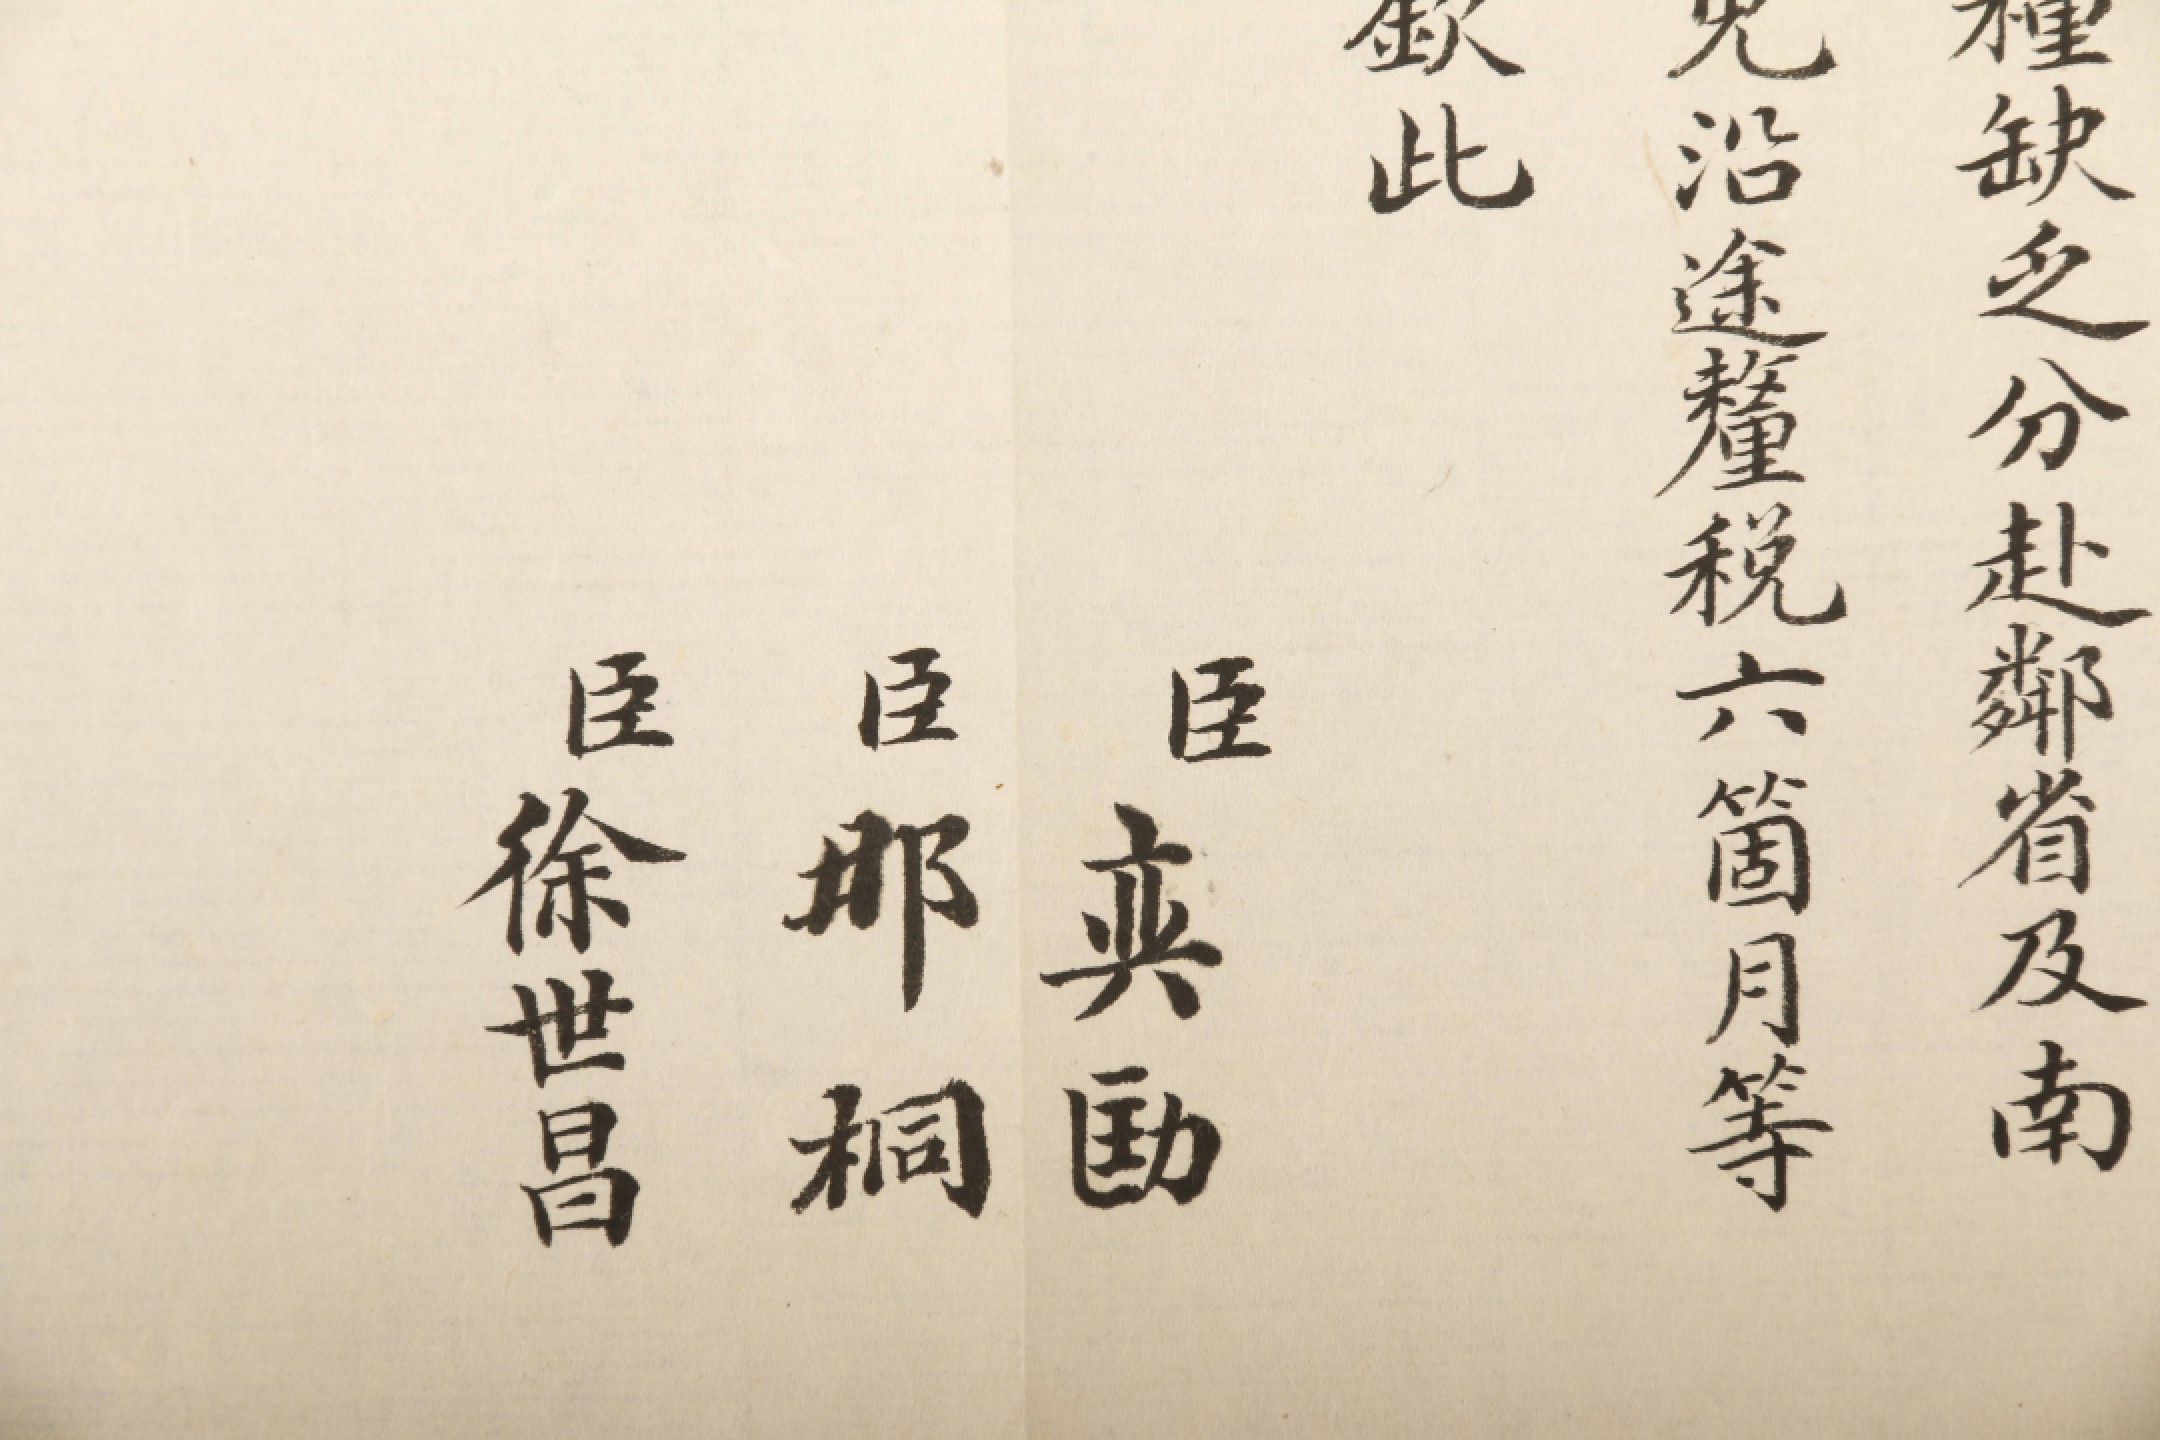 種缺乏分赴鄰省及南
免沿途釐税六箇月等
欽此
臣奕劻
臣那桐
臣徐世昌